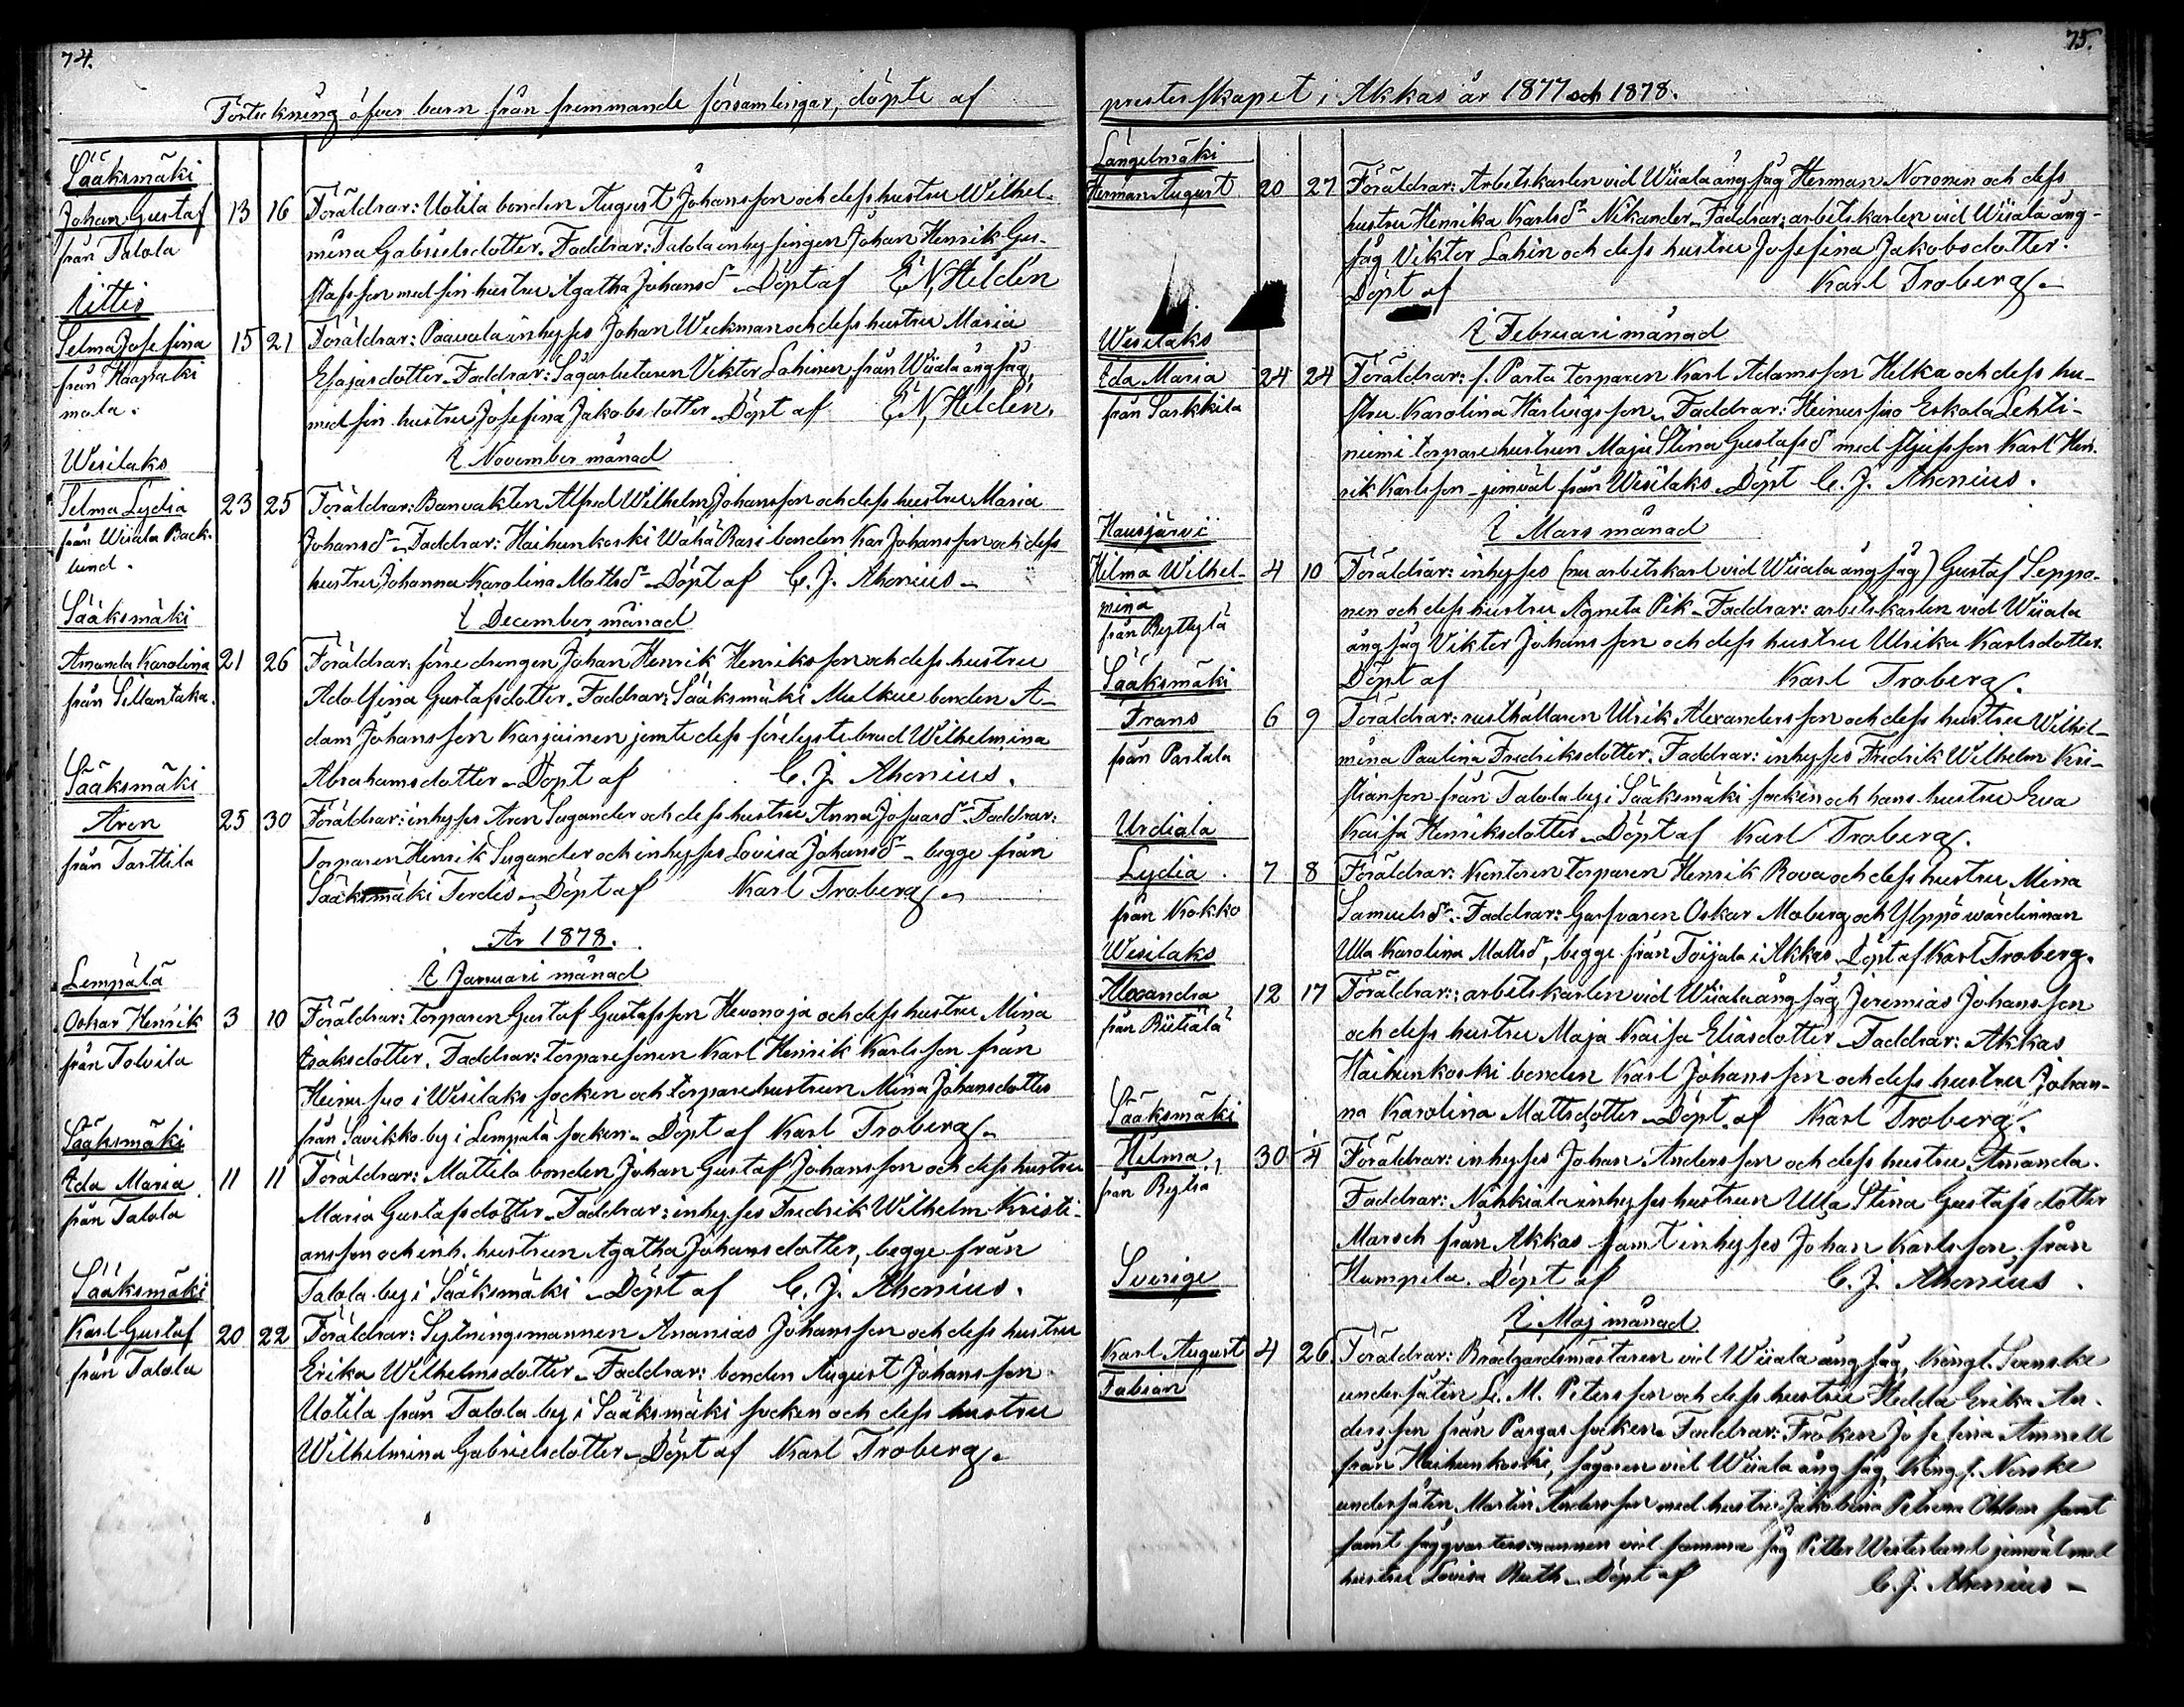 74.
Förteckning öfver barn från fremmande församlingar, döpte af
Sääksmäki
Johan Gustaf 13 16 Föräldrar: Uotila bonden August Johansson och dess hustru Wilhel-
från Talola mina Gabrielsdotter. Faddrar: Talola inhysingen Johan Henrik Gus-
tafsson med sin hustru Agatha Johansd:r Döpt af E.N. Heldén
Iittis
Selma Josefina 15 21 Föräldrar: Paavola inhyses Johan Weckman och dess hustru Maria
från Haapaki Esajasdotter. Faddrar: Sågarbetaren Viktor Lahinen från Wiiala ångsåg,
mola. med sin hustru Josefina Jakobsdotter. Döpt af E.N. Heldén.
I November månad
Wesilaks
Selma Lydia 23 25 Föräldrar: Banvakten Alfred Wilhelm Johansson och dess hustru Maria
från Wiiala Back- Johansd:r Faddrar: Haihunkoski Wähä Rasi bonden Kar Johansson och dess
lund. hustru Johanna Karolina Mattsd:r Döpt af C. J. Ahonius
I December månad
Sääksmäki
Amanda Karolina 21 26 Föräldrar: förre drengen Johan Henrik Henriksson och dess hustru
från Sillantaka. Adolfina Gustafsdotter. Faddrar: Sääksmäki Mulkue bonden A-
dam Johansson Karjainen jemte dess förelyste brud Wilhelmina
Abrahamsdotter. Döpt af C. J. Ahonius.
Sääksmäki
Aron 25 30 Föräldrar: inhyses Aron Sugander och dess hustru Anna Josuasd:r Faddrar:
från Tarttila Torparen Henrik Sugander och inhyses Lovisa Johansd:r begge från
Sääksmäki Terdis. Döpt af Karl Troberg.
År 1878.
I Januari månad
Lempälä
Oskar Henrik 3 10 Föräldrar: torparen Gustaf Gustafsson Hevonoja och dess hustru Mina
från Tolvila Isaksdotter. Faddrar: torparesonen Karl Henrik Karlsson från
Heinusuo i Wesilaks socken och torparehustrun Mina Johansdotter
från Savikko by i Lempälä socken. Döpt af Karl Troberg.
Sääksmäki
Ida Maria 11 11 Föräldrar: Mattila bonden Johan Gustaf Johansson och dess hustru
från Talola Maria Gustafsdotter. Faddrar: inhyses Fredrik Wilhelm Kristi-
ansson och inh. hustrun Agatha Johansdotter, begge från
Talola by i Sääksmäki. Döpt af C. J. Ahonius.
Sääksmäki
Karl Gustaf 20 22 Föräldrar: Sytningsmannen Ananias Johansson och dess hustru
från Talola Erika Wilhelmsdotter. Faddrar: bonden August Johansson
Uotila från Talola by i Sääksmäki socken och dess hustru
Wilhelmina Gabrielsdotter. Döpt af Karl Troberg.
75.
presterskapet i Akkas år 1877 och 1878.
Längelmäki
Herman August 20 27 Föräldrar: Arbetskarlen vid Wiiala ångsåg Herman Noronen och dess
hustru Henrika Karlsd:r Nikander. Faddrar: arbetskarlen vid Wiiala ång-
såg Viktor Lahin och dess hustru Josefina Jakobsdotter.
Döpt af Karl Troberg.
I Februari månad
Wesilaks
Ida Maria 24 24 Föräldrar: f. Parta torparen Karl Adamsson Helka och dess hu-
från Sarkkila stru Karolina Härligsson. Faddrar: Heinusuo Eskola Lehti-
niemi torpare hustrun Maja Stina Gustafsd:r med styfsson Karl Hen-
rik Karlsson jemväl från Wesilaks. Döpt C. J. Ahonius.
I Mars månad
Hausjärvi
Hilma Wilhel- 4 10 Föräldrar: inhyses (nu arbetskarl vid Wiiala ångsåg) Gustaf Seppo-
mina nen och dess hustru Agneta Pik. Faddrar: arbetskarlen vid Wiiala
från Ryttylä ångsåg Viktor Johansson och dess hustru Ulrika Karlsdotter.
Döpt af Karl Troberg.
Sääksmäki
Frans 6 9 Föräldrar: rusthållaren Ulrik Alexandersson och dess hustru Wilhel-
från Partala mina Paulina Fredriksdotter. Faddrar: inhyses Fredrik Wilhelm Kri-
stiansson från Talola by i Sääksmäki socken och hans hustru Eva
Kaisa Henriksdotter. Döpt af Karl Troberg.
Urdiala
Lydia. 7 8 Föräldrar: Kontoren torparen Henrik Rova och dess hustru Mina
från Kokko Samuelsd:r. Faddrar: Garfvaren Oskar Moberg och Ylppö wärdinnan
Ulla Karolina Mattsd:r, begge från Toijala i Akkas. Döpt af Karl Troberg.
Wesilaks
Alexandra 12 17 Föräldrar: arbetskarlen vid Wiiala ångsåg Jeremias Johansson
från Riitiälä och dess hustru Maja Kaisa Eliasdotter. Faddrar: Akkas
Haihunkoski bonden Karl Johansson och dess hustru Johan-
na Karolina Mattsdotter. Döpt af Karl Troberg.
Sääksmäki
Hilma 30 4 Föräldrar: inhyses Johan Andersson och dess hustru Amanda.
från Rytiä Faddrar: Nahkiala inhyseshustrun Ulla Stina Gustafsdotter
Marsch från Akkas samt inhyses Johan Karlsson från
Humpila. Döpt af C. J. Ahonius.
Sverige
I Maj månad
Karl August 4 26 Föräldrar: Brädgårdsmästaren vid Wiiala ångsåg, Kongl. Svenske
Fabian undersåten L. M. Petersson och dess hustru Hedda Erika An-
dersson från Pargas socken. Faddrar: Fröken Josefina Amnell
från Haihunkoski, sågaren vid Wiiala ångsåg, Kong s. Norske
undersåten Martin Andersson med hustru Jakobina Petrina Olsson samt
samt sågqvartersmannen vid samma såg Petter Westerlund jemväl med
hustru Lovisa Ruth. Döpt af C. J. Ahonius